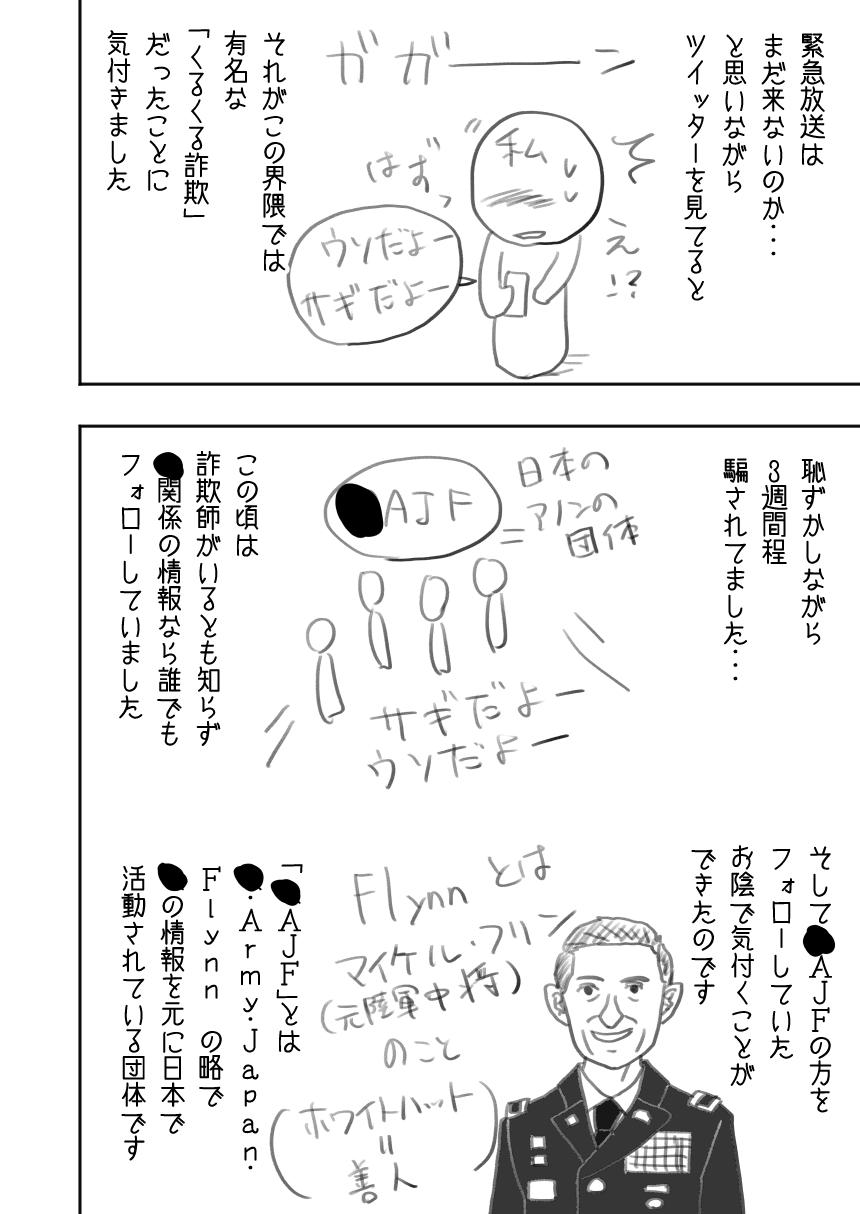 緊急放送は
まだ来ないのか・・・
と思いながら
ツイッターを見てると
ガガーーン
私
はずっ
え!?
ウソだよー
サギだよー
それがこの界隈では
有名な
「くるくる詐欺」
だったことに
気付きました
恥ずかしながら
3週間程
騙されてました・・・
日本の
アノンの
団体
=
●AJF
サギだよー
ウソだよー
この頃は
詐欺師がいるとも知らず
●関係の情報なら誰でも
フォローしていました
そして●AJFの方を
フォローしていた
お陰で気付くことが
できたのです
Flynnとは
マイケル・フリン
(元陸軍中将)
のこと
(ホワイトハット
=
善人)
「●AJF」とは
●・Army・Japan・
Flynn の略で
●の情報を元に日本で
活動されている団体です